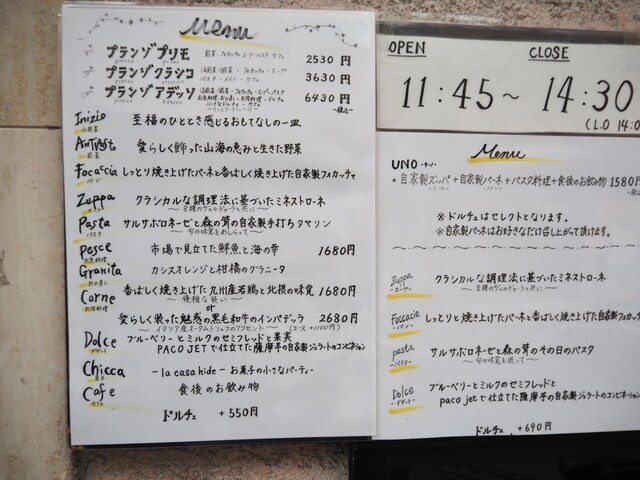 Menu
プランゾプリモ 2530円
プランゾクラシコ 3630円
プランゾアデッソ 6430円
Inizio 至福のひととき感じるおもてなしの一皿
愛らしく飾った山海の恵みと生きた野菜
前菜
Focaccia しっとり焼き上げたパーネと香ばしく焼き上げた自家製フォカッチャ
パン
Zuppa クラシカルな調理法に基づいたミネストローネ
Pasta サルサボロネーゼと森の茸の自家製手打ちタヤリン
パスタ
pesce 市場で見立てた鮮魚と海の幸 1680円
Granita カシスオレンジと柑橘のグラニータ
お口直し
Carne 香ばしく焼き上げた九州産若鶏と北根の味覚 1680円
or
愛らしく装った魅惑の黒毛和牛のインパデッラ 2680円
(コース +1100円)
Dolce ブルーベリーとミルクのセミフレッドと果実
デザート PACO JETで仕立てた薩摩芋の自家製ジェラートのコンビネーション
Chicca -la casa hide- お菓子の小さなパーティー
Cafe 食後のお飲み物
ドルチェ +550円
OPEN CLOSE
11:45〜14:30
(L.O 14:0
Menu
UNO
・自家製ズッパ+自家製パーネ+パスタ料理+食後のお飲み物 1580円
※ドルチェはセレクトとなります。
※自家製パーネはお好きなだけ召し上がって頂けます。
Zuppa クラシカルな調理法に基づいたミネストローネ
Foccacia しっとりと焼き上げたパーネと香ばしく焼き上げた自家製フォカッ
-パン-
pasta サルサボロネーゼと森の茸のその日のパスタ
-パスタ-
Dolce ブルーベリーとミルクのセミフレッドと
-デザート- paco jetで仕立てた薩摩芋の自家製ジェラートのコンビネーション
ドルチェ +690円